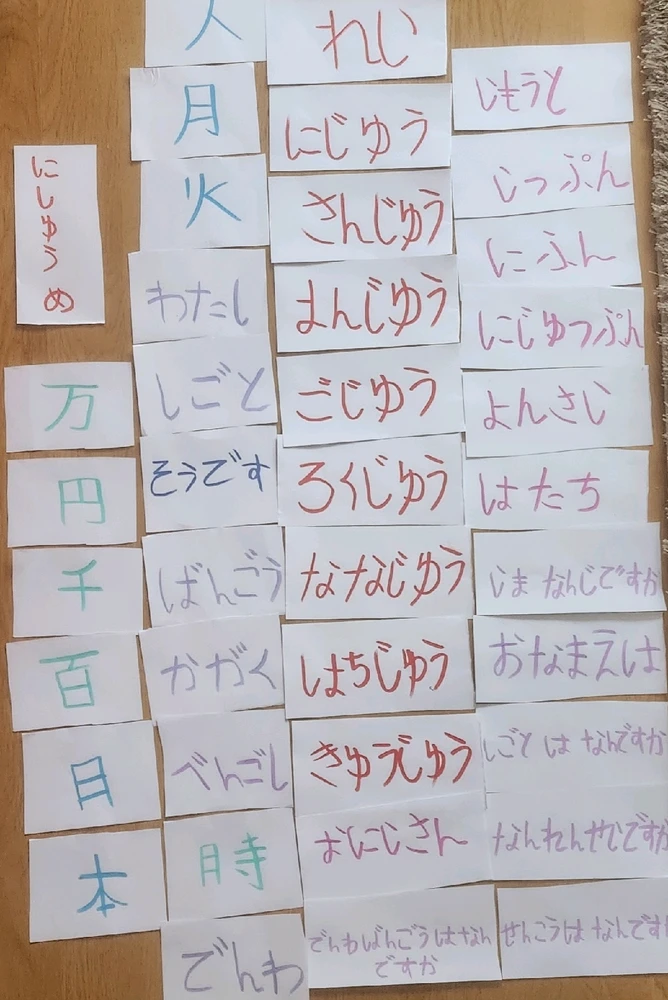 にしゅうめ
万
円
千
百
日
本
人
月
火
わたし
しごと
そうです
ばんごう
かがく
べんごし
時
でんわ
れい
にじゅう
さんじゅう
よんじゅう
ごじゅう
ろくじゅう
ななじゅう
はちじゅう
きゅうじゅう
おにいさん
でんわばんごうはなん
ですか
いもうと
いっぷん
にふん
にじゅっぷん
よんさい
はたち
いま なんじですか
おなまえは
しごと は なんですか
なんねんせいですか
せんこうは なんです